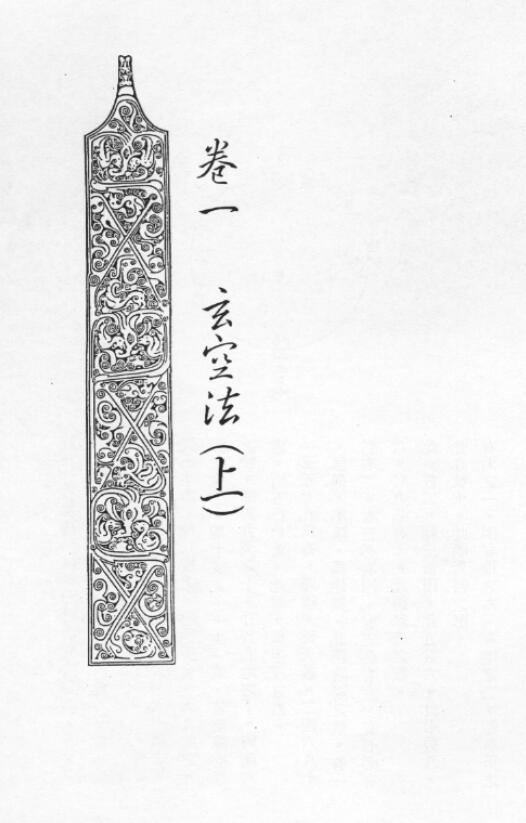 卷一 玄空法(上)